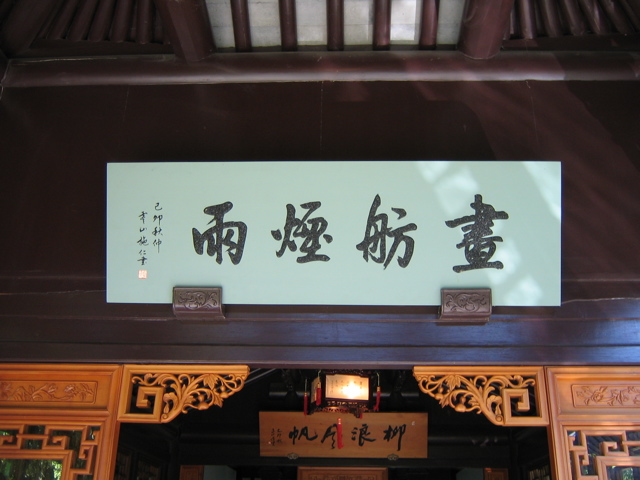 畫舫煙雨
己卯秋仲
柳浪风帆